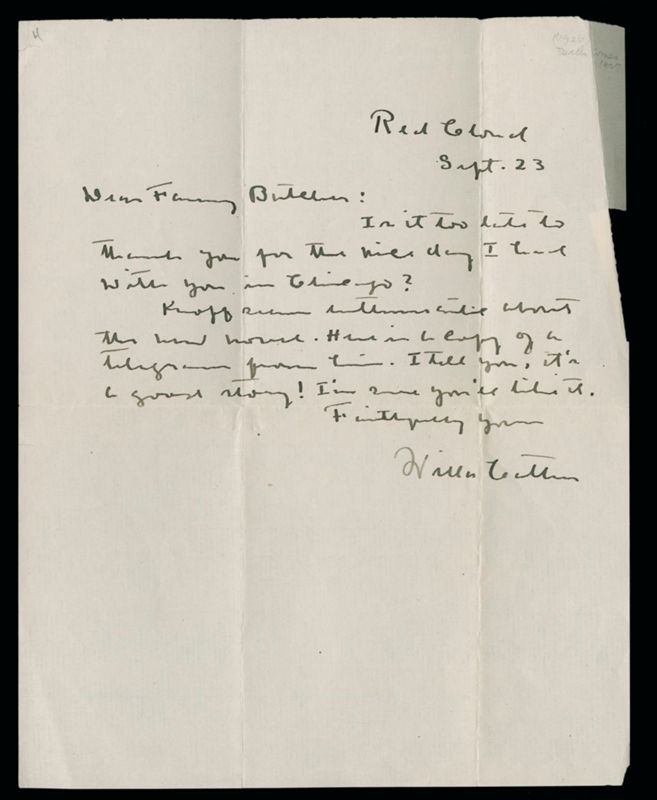 Red Cloud
Sept. 23
Dear Fanny Butcher:
Is it too late to
thank you for the nice day I had
with you in Chicago?
Knopf seems enthusiastic about
the new novel. Here is a copy of a
telegram from him. I tell you, it's
a good story! I'm sure you'll like it.
Faithfully yours
Willa Cather